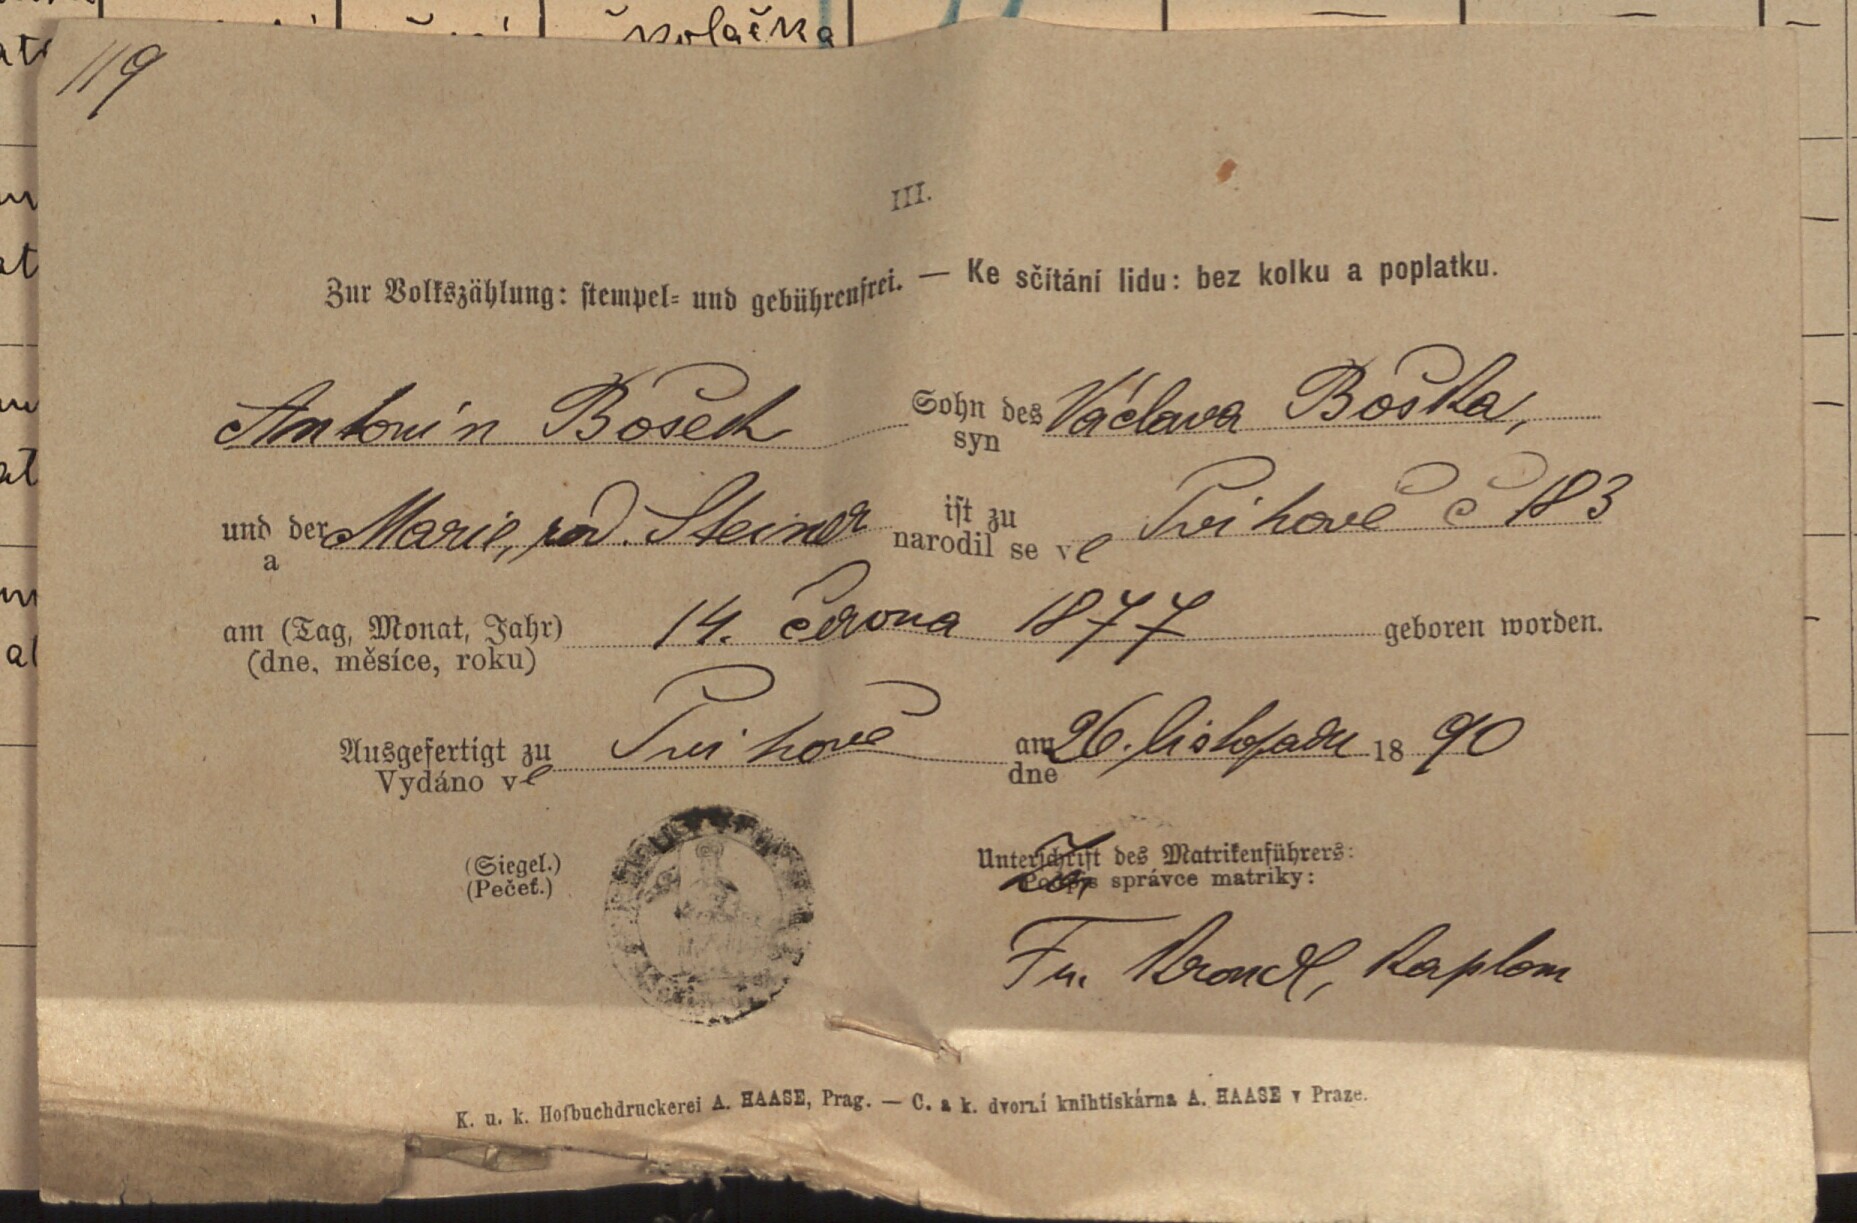 119
III.
Zur Volkszählung: stempel- und gebührenfrei. — Ke sčítání lidu: bez kolku a poplatku.
Antonín Bošek Sohn des Václava Boška,
syn
und der Marie, rod. Steiner ist zu Švihově č 183
a narodil se ve
am (Tag, Monat, Jahr) 14. června 1877 geboren worden.
(dne, měsíce, roku)
Ausgefertigt zu Švihově am 26. listopadu 1890
Vydáno ve dne
(Siegel.) Unterschrift des Matrikenführers:
(Pečeť.) Podpis správce matriky:
Fr. Krondl, kaplan
K. u. k. Hofbuchdruckerei A. HAASE, Prag. — C. a k. dvorní knihtiskárna A. HAASE v Praze.